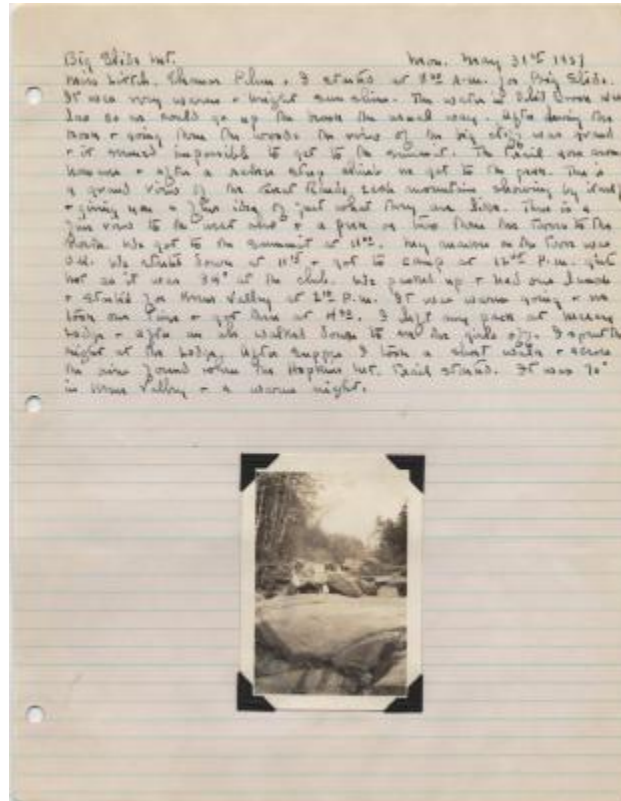 Big Slide Mt. Mon. May 31st 1937
Miss Birch, & I started at 8:00 A.M. for Big Slide.
It was very warm & bright sunshine. The water in Slide Brook was
low so we could go up the brook the usual way. After leaving the
brook & going thru the woods the view of the big cliff was grand
& it seemed impossible to get to the summit. The trail goes around
however & after a rather steep climb we got to the peak. There is
a grand view of the Great Range, each mountain showing by itself
& giving you a fine idea of just what they are like. There is a
fine view to the west also & a peek or two thru the trees to the
North. We got to the summit at 11:00. My on the was
O.K. We started down at & got to camp at P.M. quite
hot as it was at the club. We packed up & had our lunch
& started for Keene Valley at P.M. It was warm going & we
took our time & got there at I left my pack at
Lodge & after an walked down to see the girls off. I spent the
night at the Lodge. After supper I took a short walk & across
the river found where the Hopkins Mt. trail started. It was 70°
in Keene Valley & a warm night.